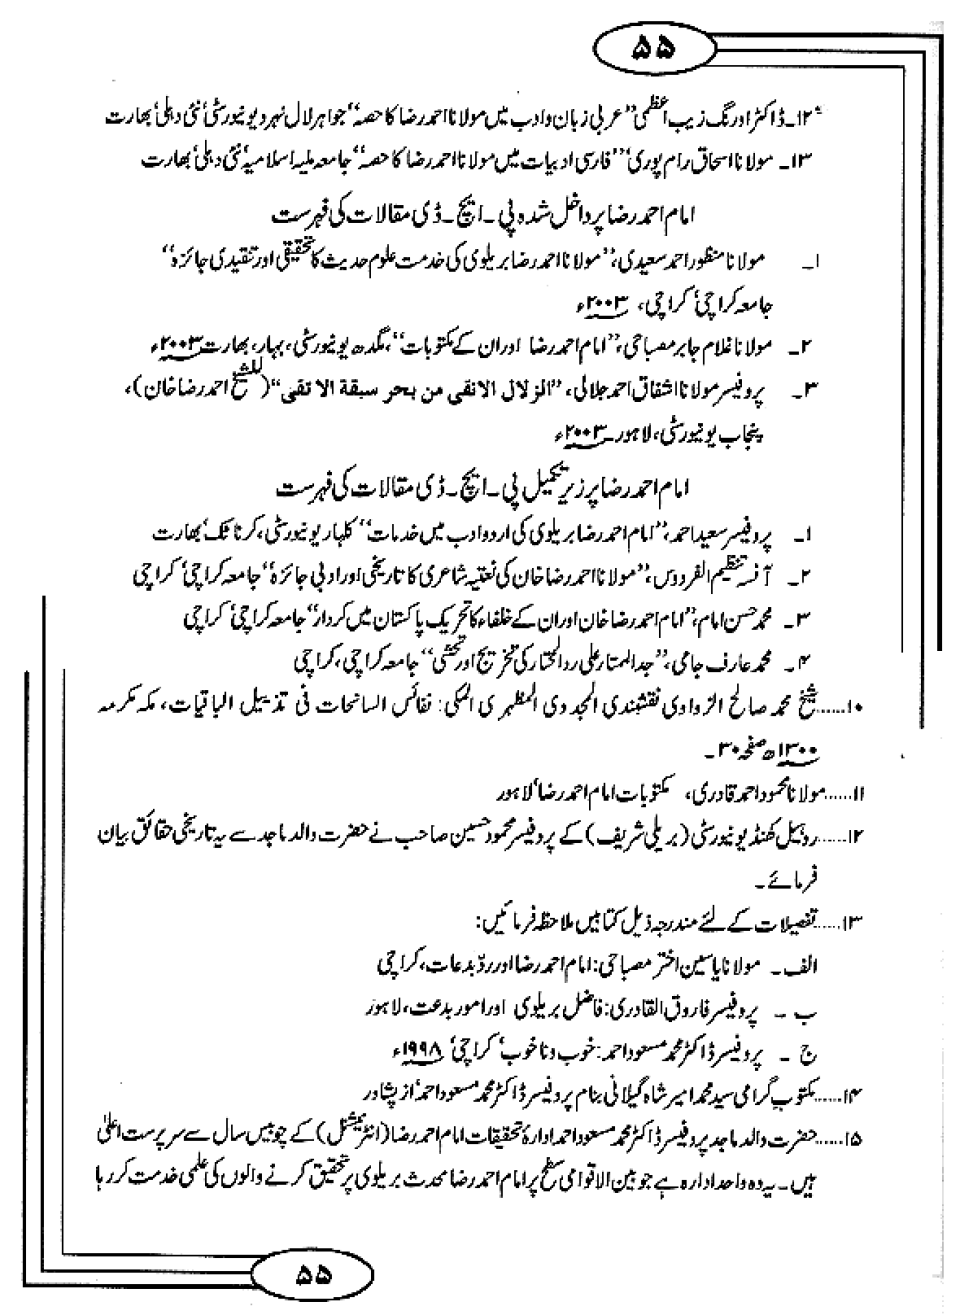 ۵۵
۱۲۔ ڈاکٹر اورنگ زیب اعظمی ’’عربی زبان و ادب میں مولانا احمد رضا کا حصہ‘‘ جواہر لال نہرو یونیورسٹی‘ نئی دہلی‘ بھارت
۱۳۔ مولانا اسحاق رام پوری‘ ’’فارسی ادبیات میں مولانا احمد رضا کا حصہ‘‘ جامعہ ملیہ اسلامیہ‘ نئی دہلی‘ بھارت
امام احمد رضا پر داخل شدہ پی۔ ایچ۔ ڈی مقالات کی فہرست
۱۔ مولانا منظور احمد سعیدی، ’’مولانا احمد رضا بریلوی کی خدمت علوم حدیث کا تحقیقی اور تنقیدی جائزہ‘‘
جامعہ کراچی‘ کراچی، ۲۰۰۳ء
۲۔ مولانا غلام جابر مصباحی، ’’امام احمد رضا اور ان کے مکتوبات‘‘، مگدھ یونیورسٹی، بہار، بھارت ۲۰۰۳ء
۳۔ پروفیسر مولانا اشفاق احمد جلالی، ’’الزلال الانقی من بحر سبقة الاتقی‘‘ (للشیخ احمد رضا خان)،
پنجاب یونیورسٹی، لاہور ۲۰۰۳ء
امام احمد رضا پر زیر تکمیل پی۔ ایچ۔ ڈی مقالات کی فہرست
۱۔ پروفیسر سعید احمد، ’’امام احمد رضا بریلوی کی اردو ادب میں خدمات‘‘ کلہار یونیورسٹی، کرناٹک‘ بھارت
۲۔ آنسہ تنظیم الفردوس، ’’مولانا احمد رضا خان کی نعتیہ شاعری کا تاریخی اور ادبی جائزہ‘‘ جامعہ کراچی‘ کراچی
۳۔ محمد حسن امام، ’’امام احمد رضا خان اور ان کے خلفاء کا تحریک پاکستان میں کردار‘‘ جامعہ کراچی‘ کراچی
۴۔ محمد عارف جامی، ’’جد الممتار علی رد المحتار کی تخریج اور تحشی‘‘ جامعہ کراچی، کراچی
۱۰......شیخ محمد صالح الزواوی نقشبندی المجددی المظہری المکی: نفائس السانحات فی تذییل الباقیات، مکہ مکرمہ
۱۳۰۰ھ صفحہ ۳۰۔
۱۱......مولانا محمود احمد قادری، مکتوبات امام احمد رضا‘ لاہور
۱۲......روہیل کھنڈ یونیورسٹی (بریلی شریف) کے پروفیسر محمود حسین صاحب نے حضرت والد ماجد سے یہ تاریخی حقائق بیان
فرمائے۔
۱۳......تفصیلات کے لئے مندرجہ ذیل کتابیں ملاحظہ فرمائیں:
الف۔ مولانا یاسین اختر مصباحی: امام احمد رضا اور ردّ بدعات، کراچی
ب۔ پروفیسر فاروق القادری: فاضل بریلوی اور امور بدعت، لاہور
ج۔ پروفیسر ڈاکٹر محمد مسعود احمد: خوب و ناخوب‘ کراچی‘ ۱۹۹۸ء
۱۴......مکتوب گرامی سید محمد امیر شاہ گیلانی بنام پروفیسر ڈاکٹر محمد مسعود احمد‘ از پشاور
۱۵......حضرت والد ماجد پروفیسر ڈاکٹر محمد مسعود احمد ادارۂ تحقیقات امام احمد رضا (انٹرنیشنل) کے چوبیس سال سے سرپرست اعلیٰ
ہیں۔ یہ وہ واحد ادارہ ہے جو بین الاقوامی سطح پر امام احمد رضا محدث بریلوی پر تحقیق کرنے والوں کی علمی خدمت کر رہا
۵۵